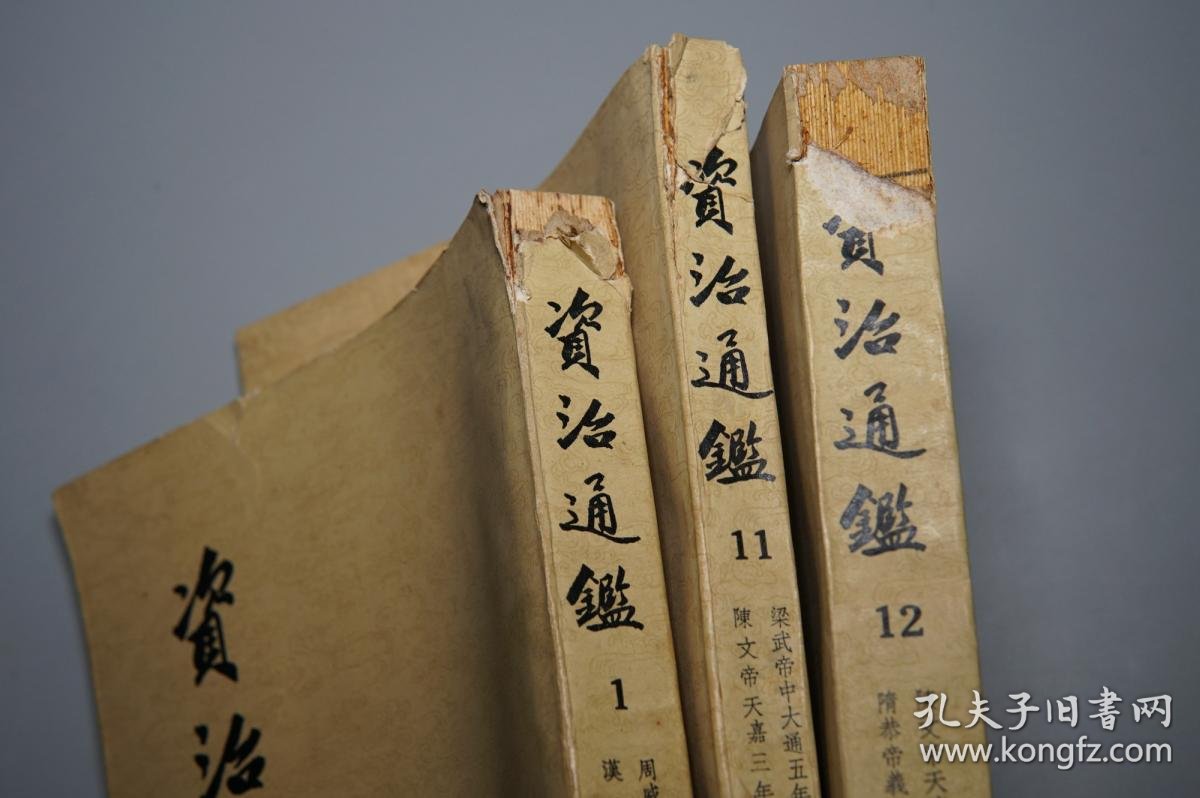 資治
資治通鑑
1
周威
漢
資治通鑑
11
梁武帝中大通五年
陳文帝天嘉三年
資治通鑑
12
天
隋恭帝義
孔夫子旧书网
www.kongfz.com